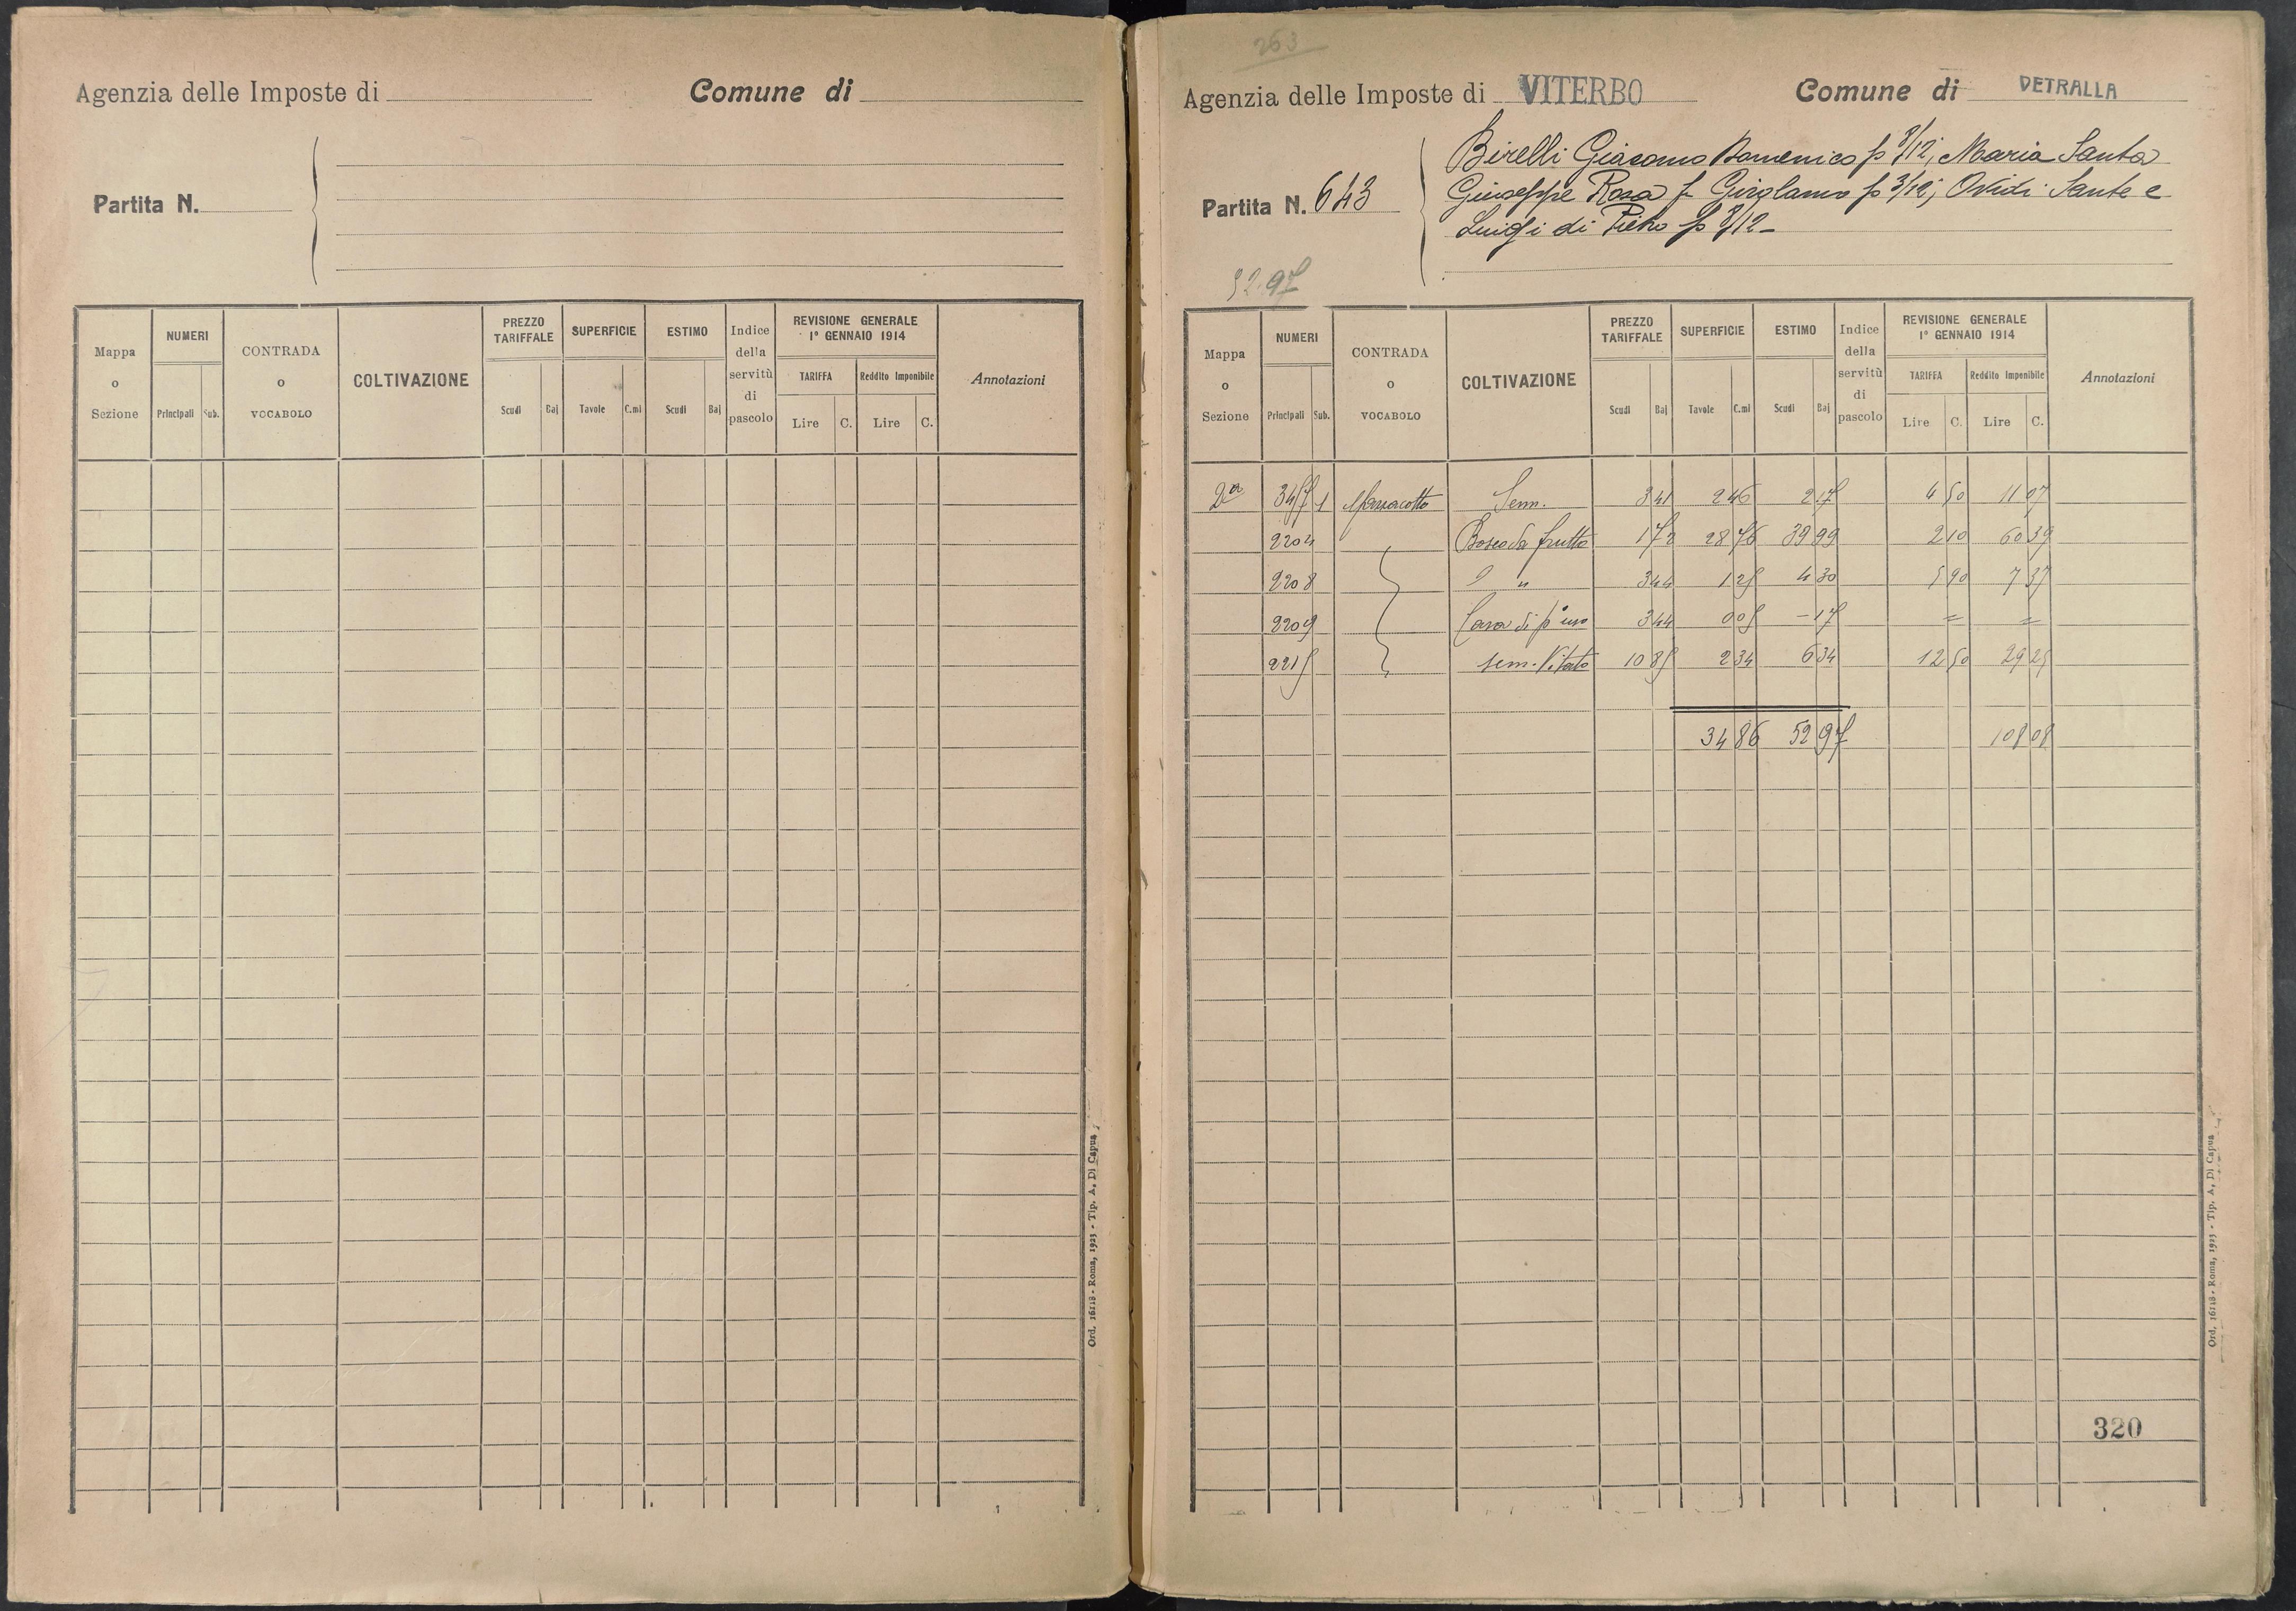 Agenzia delle Imposte di
Comune di
Partita N.
Mappa o Sezione
NUMERI
Principali
Sub.
CONTRADA o VOCABOLO
COLTIVAZIONE
PREZZO TARIFFALE
Scudi
Baj
SUPERFICIE
Tavole
C.mi
ESTIMO
Scudi
Baj
Indice della servitù di pascolo
REVISIONE GENERALE
1° GENNAIO 1914
TARIFFA
Lire
C.
Reddito Imponibile
Lire
C.
Annotazioni
Ord. 16118 - Roma, 1923 - Tip. A. Di Capua
263
Agenzia delle Imposte di VITERBO
Comune di VETRALLA
Partita N. 643
Birelli Giacomo Domenico p 3/12; Maria Santa
Giuseppe Rosa f Girolamo p 3/12; Ovidi Sante e
Luigi di Pietro p
52.97
Mappa o Sezione
NUMERI
Principali
Sub.
CONTRADA o VOCABOLO
COLTIVAZIONE
PREZZO TARIFFALE
Scudi
Baj
SUPERFICIE
Tavole
C.mi
ESTIMO
Scudi
Baj
Indice della servitù di pascolo
REVISIONE GENERALE
1° GENNAIO 1914
TARIFFA
Lire
C.
Reddito Imponibile
Lire
C.
Annotazioni
2a 347 1 Sem. 3 41 2 46 2 17 4 50 11 07
2204 Bosco da frutto 1 72 28 76 39 99 2 10 60 39
2208 " 3 44 1 25 4 30 5 90 7 37
2209 Casa di p° uso 3 44 0 05 - 17 = =
2215 Sem. Vitato 10 85 2 34 6 34 12 50 29 25
34 86 52 97 108 08
320
Ord. 16118 - Roma, 1923 - Tip. A. Di Capua